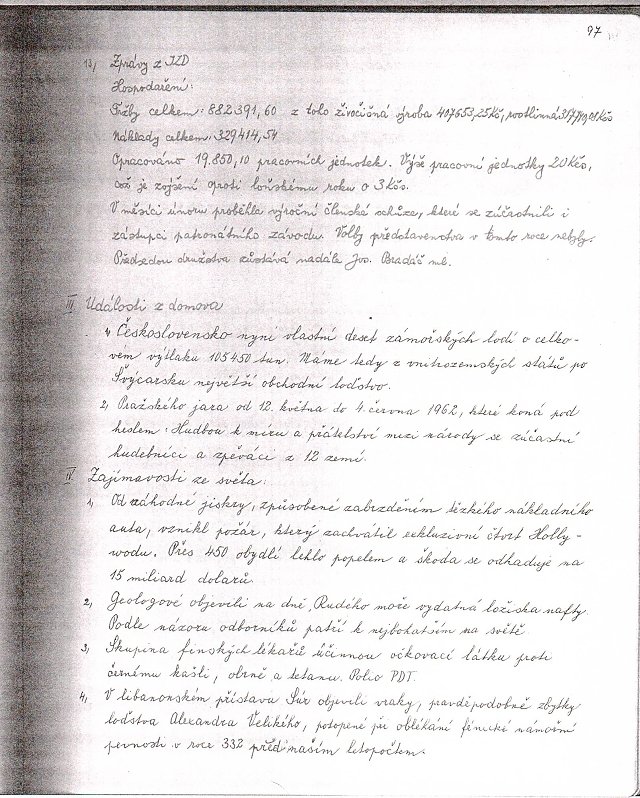 97
13, Zprávy z JZD
Hospodaření:
Tržby celkem: 882 391,60 z toho živočišná výroba 407653,25 Kčs, rostlinná
Náklady celkem: 329414,54
Opracováno 19.850,10 pracovních jednotek. Výše pracovní jednotky 20 Kčs,
což je zvýšení oproti loňskému roku o 3 Kčs.
V měsíci únoru proběhla výroční členská schůze, které se zúčastnili i
zástupci patronátního závodu. Volby představenstva v tomto roce nebyly.
Předsedou družstva zůstává nadále Jos. Bradáč ml.
III Události z domova
1, Československo nyní vlastní deset zámořských lodí o celko-
vém výtlaku 105450 tun. Máme tedy z vnitrozemských států po
Švýcarsku největší obchodní loďstvo.
2, Pražského jara od 12. května do 4. června 1962, které koná pod
heslem: Hudbou k míru a přátelství mezi národy se zúčastní
hudebníci a zpěváci z 12 zemí.
IV Zajímavosti ze světa:
1, Od záhodné jiskry, způsobené zabrzděním těžkého nákladního
auta, vznikl požár, který zachvátil exkluzivní čtvrt Holly-
wodu. Přes 450 obydlí lehlo popelem a škoda se odhaduje na
15 miliard dolarů.
2, Geologové objevili na dně Rudého moře vydatná ložiska nafty.
Podle názoru odborníků patří k nejbohatším na světě.
3, Skupina finských lékařů účinnou očkovací látku proti
černému kašli, obrně a tetanu. Polio PDT.
4, V libanonském přístavu Súr objevili vraky, pravděpodobně zbytky
loďstva Alexandra Velikého, potopené při obléhání fénické námořní
pevnosti v roce 332 před naším letopočtem.